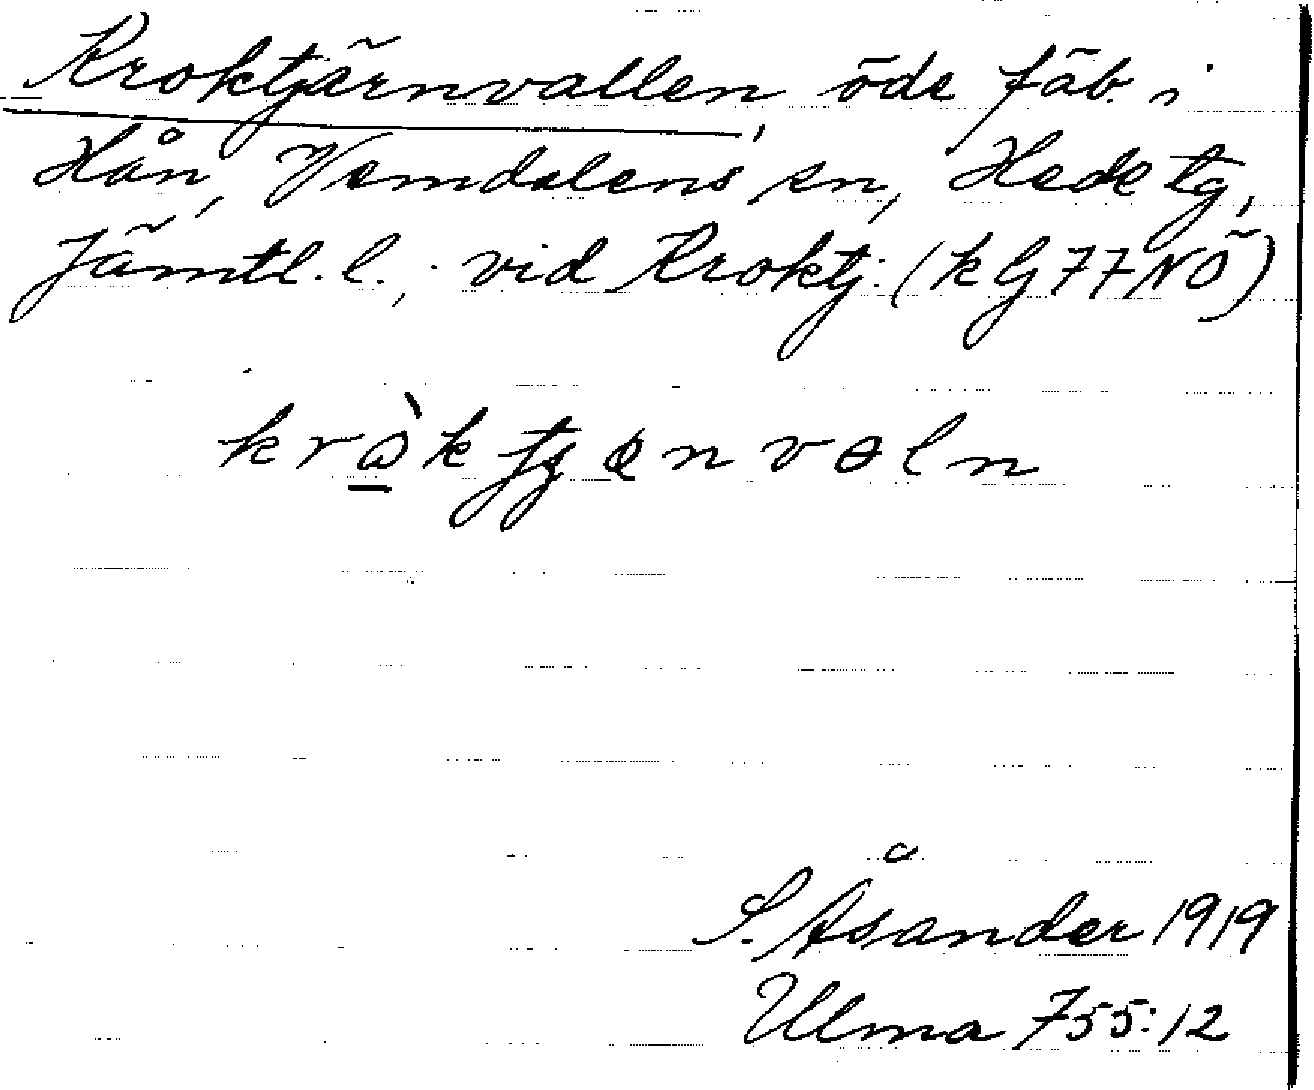 Kroktjärnvallen, öde fäb. i
Hån, Vemdalens sn, Hede tg,
Jämtl. l.; vid Kroktj. (kG77NÖ)
krὼ̱ktjɵnvɵln
S. Åsander 1919
Ulma 755:12